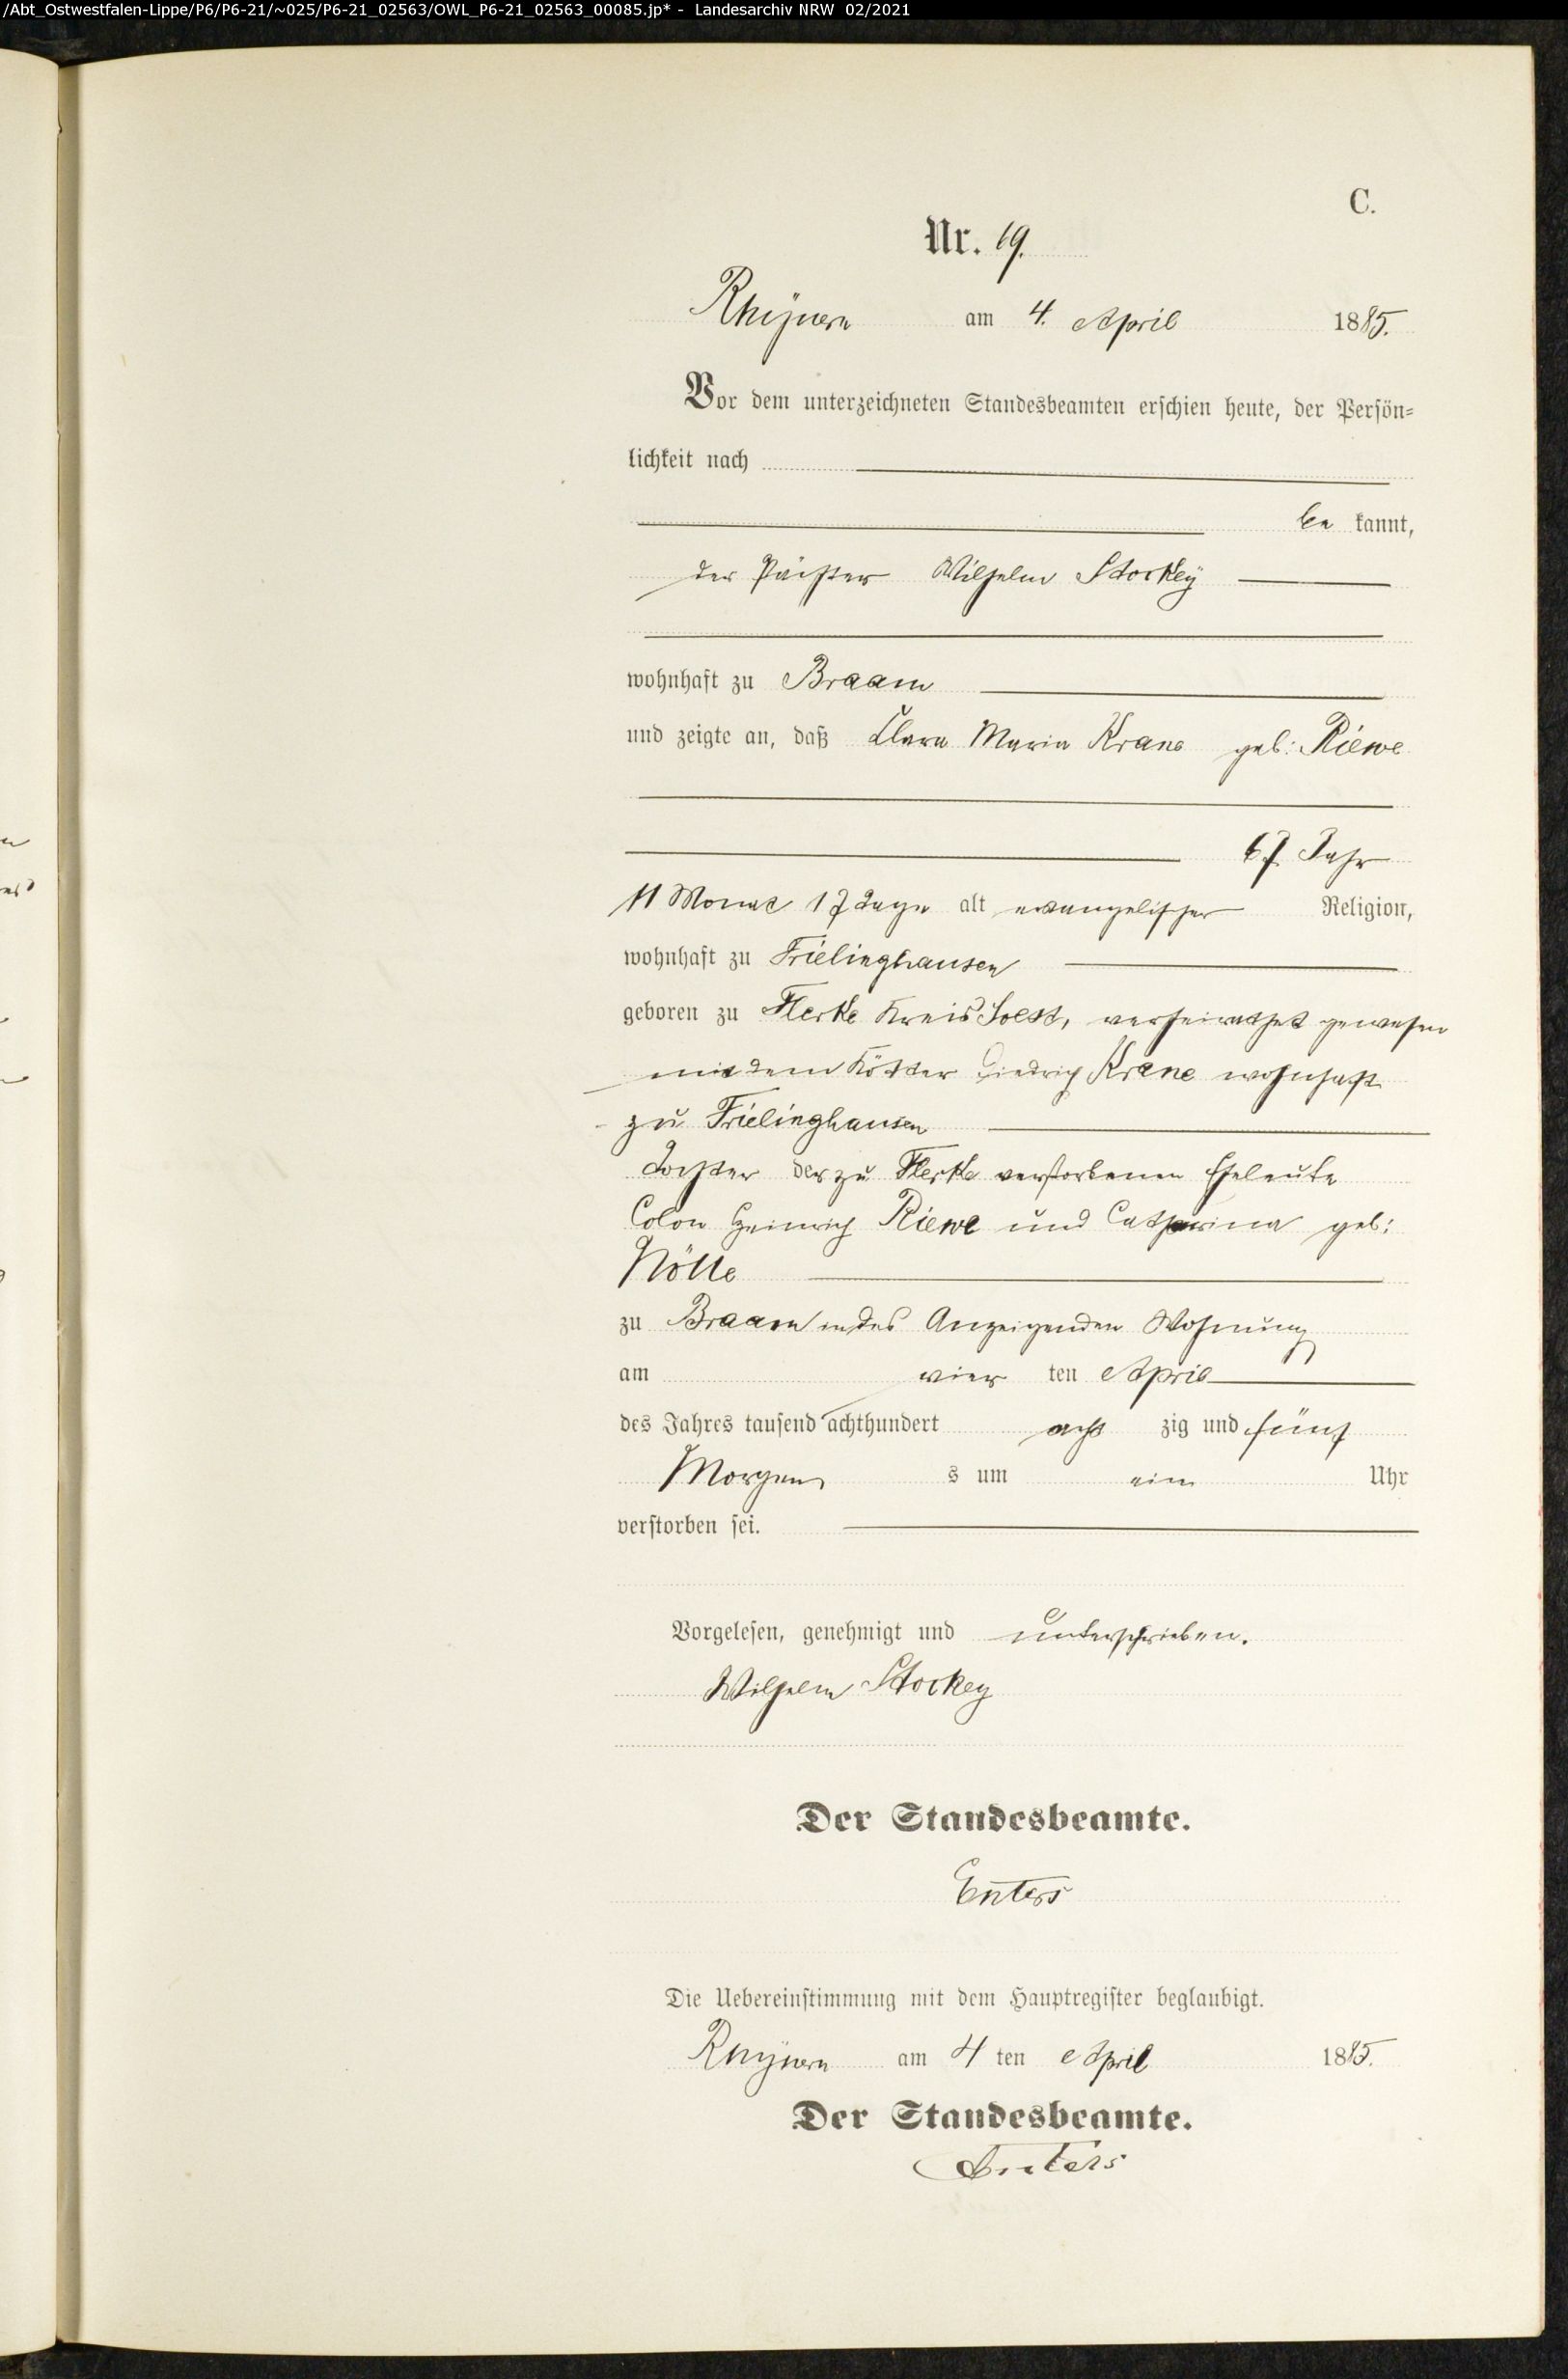 /Abt_Ostwestfalen-Lippe/P6/P6-21/~025/P6-21_02563/OWL_P6-21_02563_00085.jp* - Landesarchiv NRW 02/2021
C.
Nr. 19.
Rhynern am 4. April 1885.
Vor dem unterzeichneten Standesbeamten erschien heute, der Persön=
lichkeit nach
be kannt,
der Pächter Wilhelm Stockey
wohnhaft zu Braam
und zeigte an, daß Clara Maria Krane geb: Riewe
67 Jahr
11 Monat 17 Tage alt evangelischer Religion,
wohnhaft zu Frielinghausen
geboren zu Flerke Kreis Soest, verheirathet gewesen
mit dem Kötter Diedrich Krane wohnhaft
zu Frielinghausen
Tochter der zu Flerke verstorbenen Eheleute
Colon Heinrich Riewe und Catharina geb:
Nölle
zu Braam in des Anzeigenden Wohnung
am vier ten April
des Jahres tausend achthundert acht zig und fünf
Morgen s um ein Uhr
verstorben sei.
Vorgelesen, genehmigt und unterschrieben.
Wilhelm Stockey
Der Standesbeamte.
Enters
Die Uebereinstimmung mit dem Hauptregister beglaubigt.
Rhynern am 4 ten April 1885.
Der Standesbeamte.
Enters